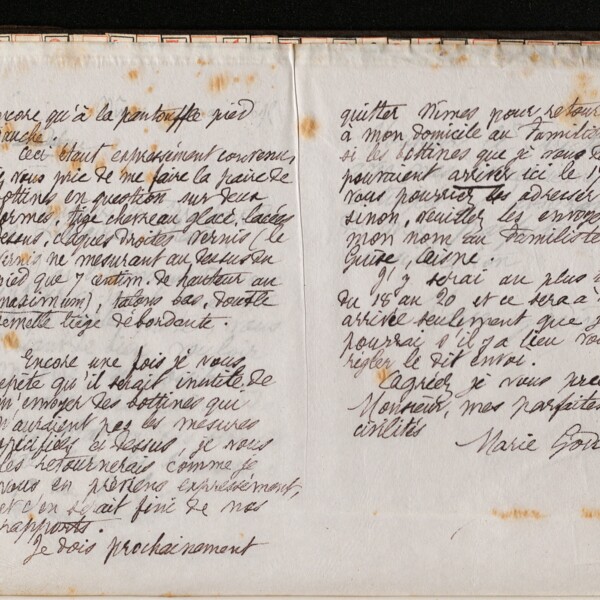 ncore qu'à la pantouffle pied
auche.
Ceci étant expressément convenu,
je vous prie de me faire la paire de
ottines en question sur deux
ormes, tige chevreau glacé, lacées
essus, claques droites vernis (le
ernis ne mesurant au dessus du
pied que 7 centim. de hauteur au
maximum), talons bas, double
semelle liège débordante.
Encore une fois je vous
épète qu'il serait inutile de
m'envoyer des bottines qui
n'auraient pas les mesures
spécifiées ci dessus, je vous
les retournerais comme je
vous en préviens expressément,
et c'en serait fini de nos
rapports.
Je dois prochainement
quitter Nîmes pour retour
à mon domicile au Familis
si les bottines que je vous de
pouvaient arriver ici le 1
vous pourriez les adresser
sinon, veuillez les envoy
mon nom au Familiste
Guise, Aisne.
J'y serai au plus
du 18 au 20 et ce sera à
arrivée seulement que j
pourrai s'il y a lieu vou
régler le dit envoi.
Agréez je vous prie
Monsieur, mes parfaites
civilités
Marie God